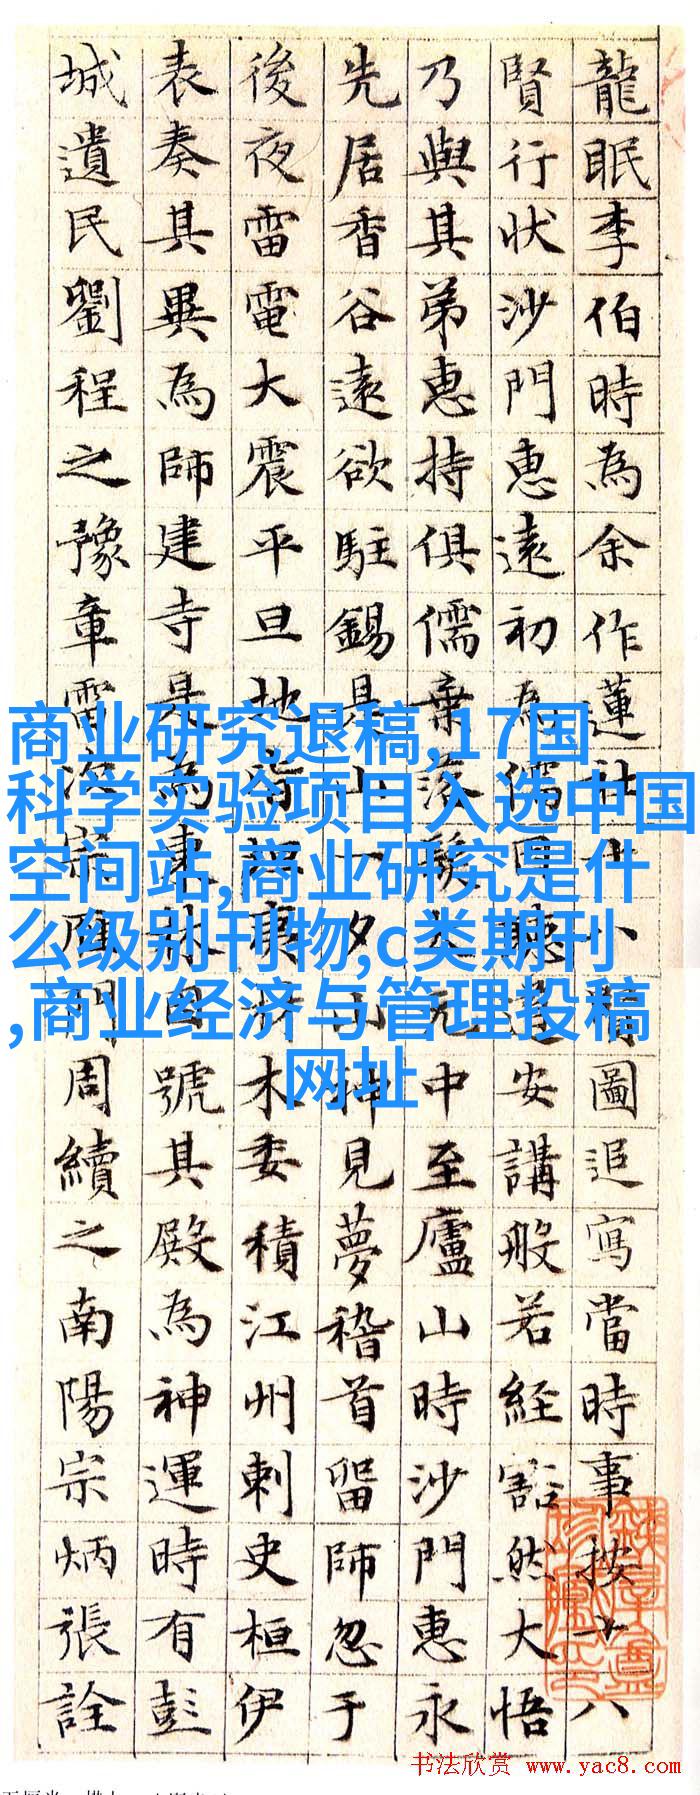 龍眠李伯時為余作蓮社十八圖追寫當時事按十八
賢行狀沙門惠遠初為儒因聽道安講般若經豁然大悟
乃與其弟惠持俱儒棄落髮太元中至廬山時沙門惠永
先居香谷遠欲駐錫是山一夕山神見夢稽首留師忽于
後夜雷電大震平旦地木委積江州刺史桓伊
表奏其異為師建寺是為東林自號其殿為神運時有彭
城遺民劉程之豫章雷次宗雁門周續之南陽宗炳張詮
商业研究退稿,17国
科学实验项目入选中国
空间站,商业研究是什
么级别刊物,c类期刊
,商业经济与管理投稿
网址
书法欣赏 www.yac8.com